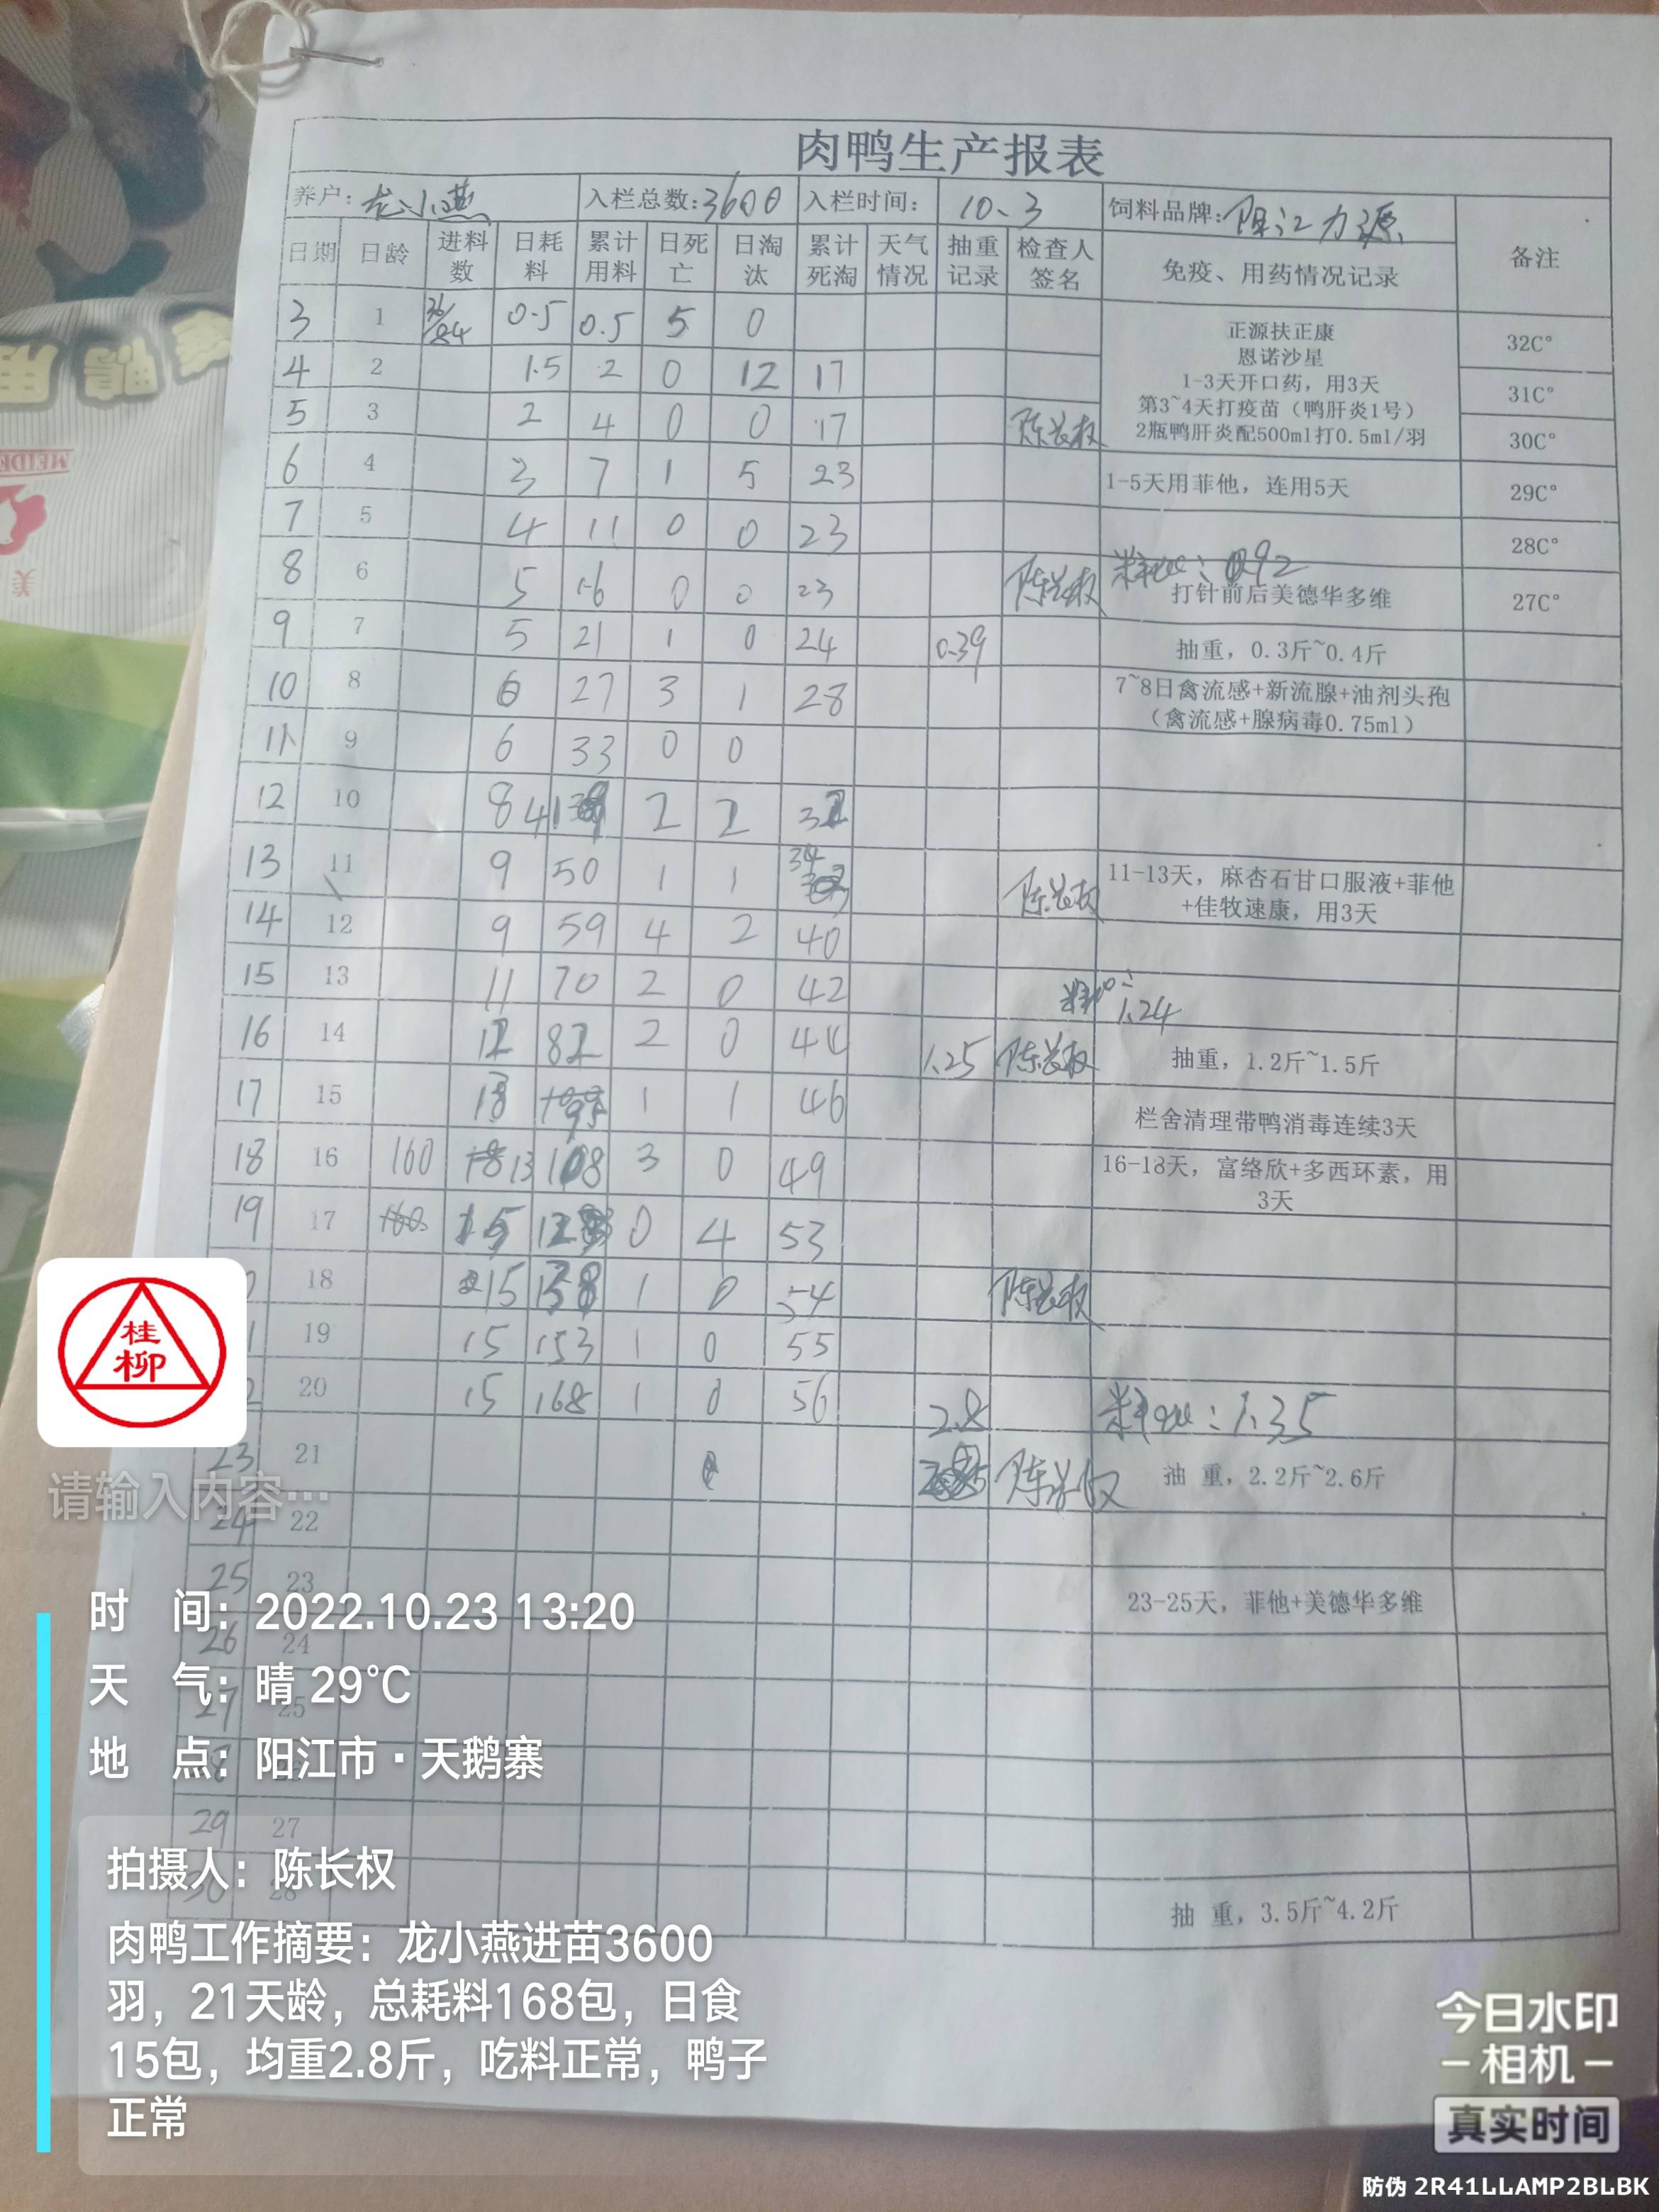 肉鸭生产报表
养户: 龙小燕 入栏总数:3600 入栏时间: 10.3 饲料品牌: 阳江力源 备注
日期 日龄 进料数 日耗料 累计用料 日死亡 日淘汰 累计死淘 天气情况 抽重记录 检查人签名 免疫、用药情况记录
3 1 0.5 0.5 5 0 32C°
正源扶正康
恩诺沙星
1-3天开口药，用3天
第3~4天打疫苗（鸭肝炎1号）
2瓶鸭肝炎配500ml打0.5ml/羽
4 2 1.5 2 0 12 17 31C°
5 3 2 4 0 0 17 陈长权 30C°
6 4 3 7 1 5 23 1-5天用菲他，连用5天 29C°
7 5 4 11 0 0 23 28C°
8 6 5 16 0 0 23 陈长权 料比: 0.92 打针前后美德华多维 27C°
9 7 5 21 1 0 24 0.39 抽重，0.3斤~0.4斤
10 8 6 27 3 1 28 7~8日禽流感+新流腺+油剂头孢
（禽流感+腺病毒0.75ml）
11 9 6 33 0 0
12 10 8 41 2 2 32
13 11 9 50 1 1 34 陈长权 11-13天，麻杏石甘口服液+菲他
+佳牧速康，用3天
14 12 9 59 4 2 40
15 13 11 70 2 0 42 料比: 1.24
16 14 12 82 2 0 44 1.25 陈长权 抽重，1.2斤~1.5斤
17 15 13 95 1 1 46 栏舍清理带鸭消毒连续3天
18 16 160 13 108 3 0 49 16-18天，富络欣+多西环素，用
3天
19 17 15 123 0 4 53
18 15 138 1 0 54 陈长权
19 15 153 1 0 55
20 15 168 1 0 56 2.8 料比: 1.35
23 21 陈长权 抽 重，2.2斤~2.6斤
24 22
25 23 23-25天，菲他+美德华多维
26 24
27 25
29 27
30 28 抽 重，3.5斤~4.2斤
桂
柳
请输入内容…
时 间: 2022.10.23 13:20
天 气: 晴 29℃
地 点: 阳江市·天鹅寨
拍摄人: 陈长权
肉鸭工作摘要: 龙小燕进苗3600
羽，21天龄，总耗料168包，日食
15包，均重2.8斤，吃料正常，鸭子
正常
今日水印
-相机-
真实时间
防伪 2R41LLAMP2BLBK